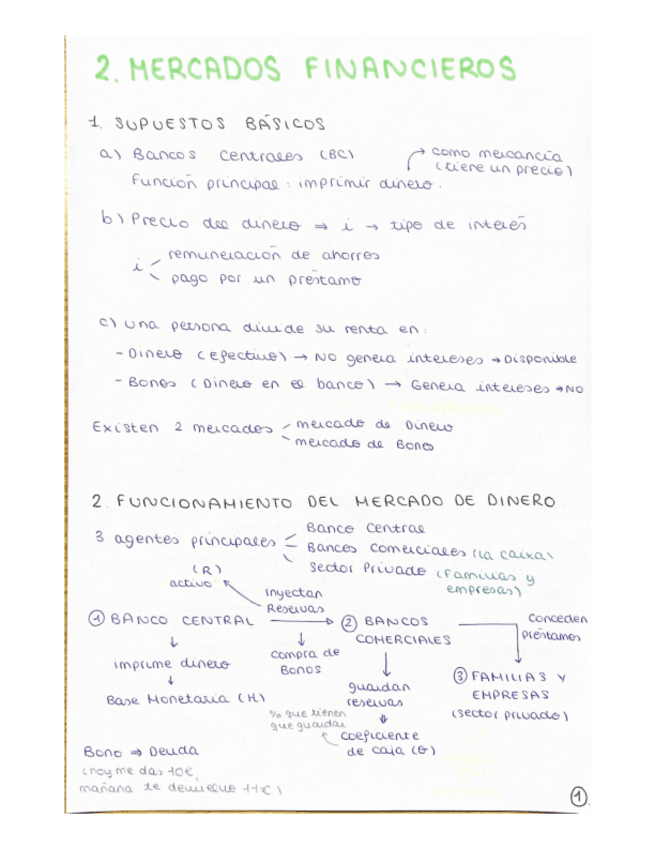 2. MERCADOS FINANCIEROS
1. SUPUESTOS BÁSICOS
a) Bancos Centrales (BC)
como mercancía
(tiene un precio)
Función principal: imprimir dinero.
b) Precio del dinero ⇒ i → tipo de interés
i
remuneración de ahorros
pago por un préstamo
c) Una persona divide su renta en:
- Dinero (Efectivo) → NO genera intereses → Disponible
- Bonos (Dinero en el banco) → Genera intereses → NO
Existen 2 mercados
mercado de Dinero
mercado de Bonos
2. FUNCIONAMIENTO DEL MERCADO DE DINERO
3 agentes principales
Banco Central
Bancos Comerciales (La caixa)
Sector Privado (Familias y
empresas)
(R)
activo
Inyectan
Reservas
① BANCO CENTRAL
② BANCOS
COMERCIALES
Conceden
préstamos
imprime dinero
compra de
Bonos
Base Monetaria (H)
guardan
reservas
③ FAMILIAS Y
EMPRESAS
(sector privado)
% que tienen
que guardar
coeficiente
de caja (θ)
Bono ⇒ Deuda
(hoy me das 10€,
mañana te devuelvo 11€)
①